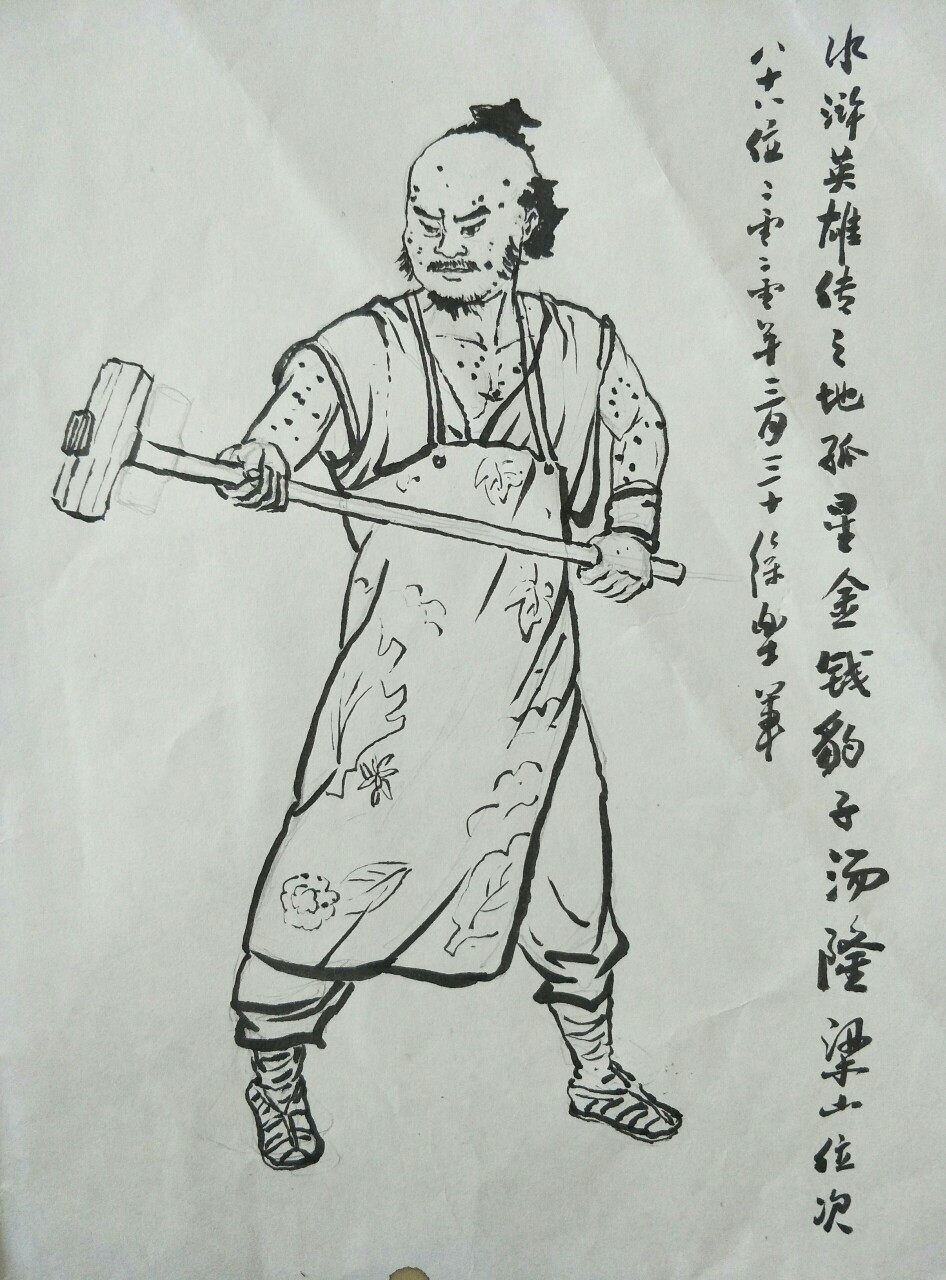 水浒英雄传之地孤星金钱豹子汤隆梁山位次
八十八位二零二零年三月三十徐笔